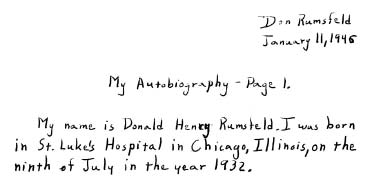 Don Rumsfeld
January 11, 1946
My Autobiography - Page 1.
My name is Donald Henry Rumsfeld. I was born
in St. Luke's Hospital in Chicago, Illinois, on the
ninth of July in the year 1932.